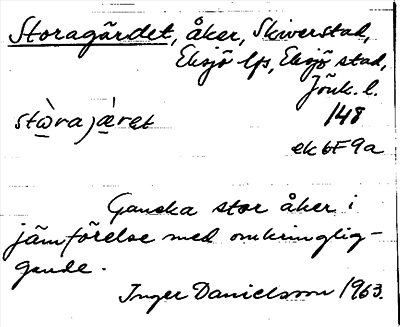 Storagärdet, åker, Skiverstad,
Eksjö lfs, Eksjö stad,
Jönk. l.
148
stὼrajæ̀ret
ek 6F9a
Ganska stor åker i
jämförelse med omkringlig-
gande.
Inger Danielsson 1963.